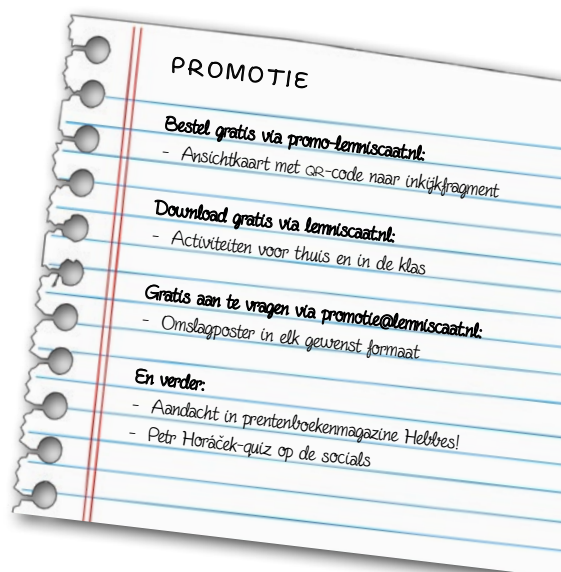 PROMOTIE
Bestel gratis via promo-lemniscaat.nl:
- Ansichtkaart met QR-code naar inkijkfragment
Download gratis via lemniscaat.nl:
- Activiteiten voor thuis en in de klas
Gratis aan te vragen via promotie@lemniscaat.nl:
- Omslagposter in elk gewenst formaat
En verder:
- Aandacht in prentenboekenmagazine Hebbes!
- Petr Horáček-quiz op de socials